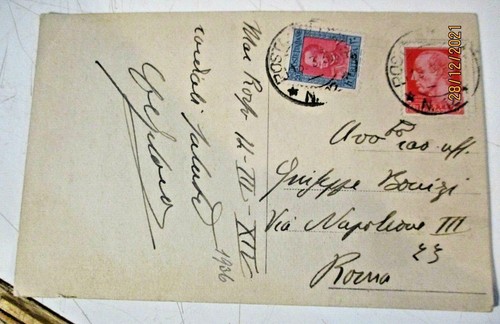 Mar Rosso 11-III-XIV
1936
cordiali saluti
POSTA
POSTA
N.
N.
Avv to Cav. uff.
Giuseppe Bonizi
Via Napoleone III
23
Roma
28/12/2021